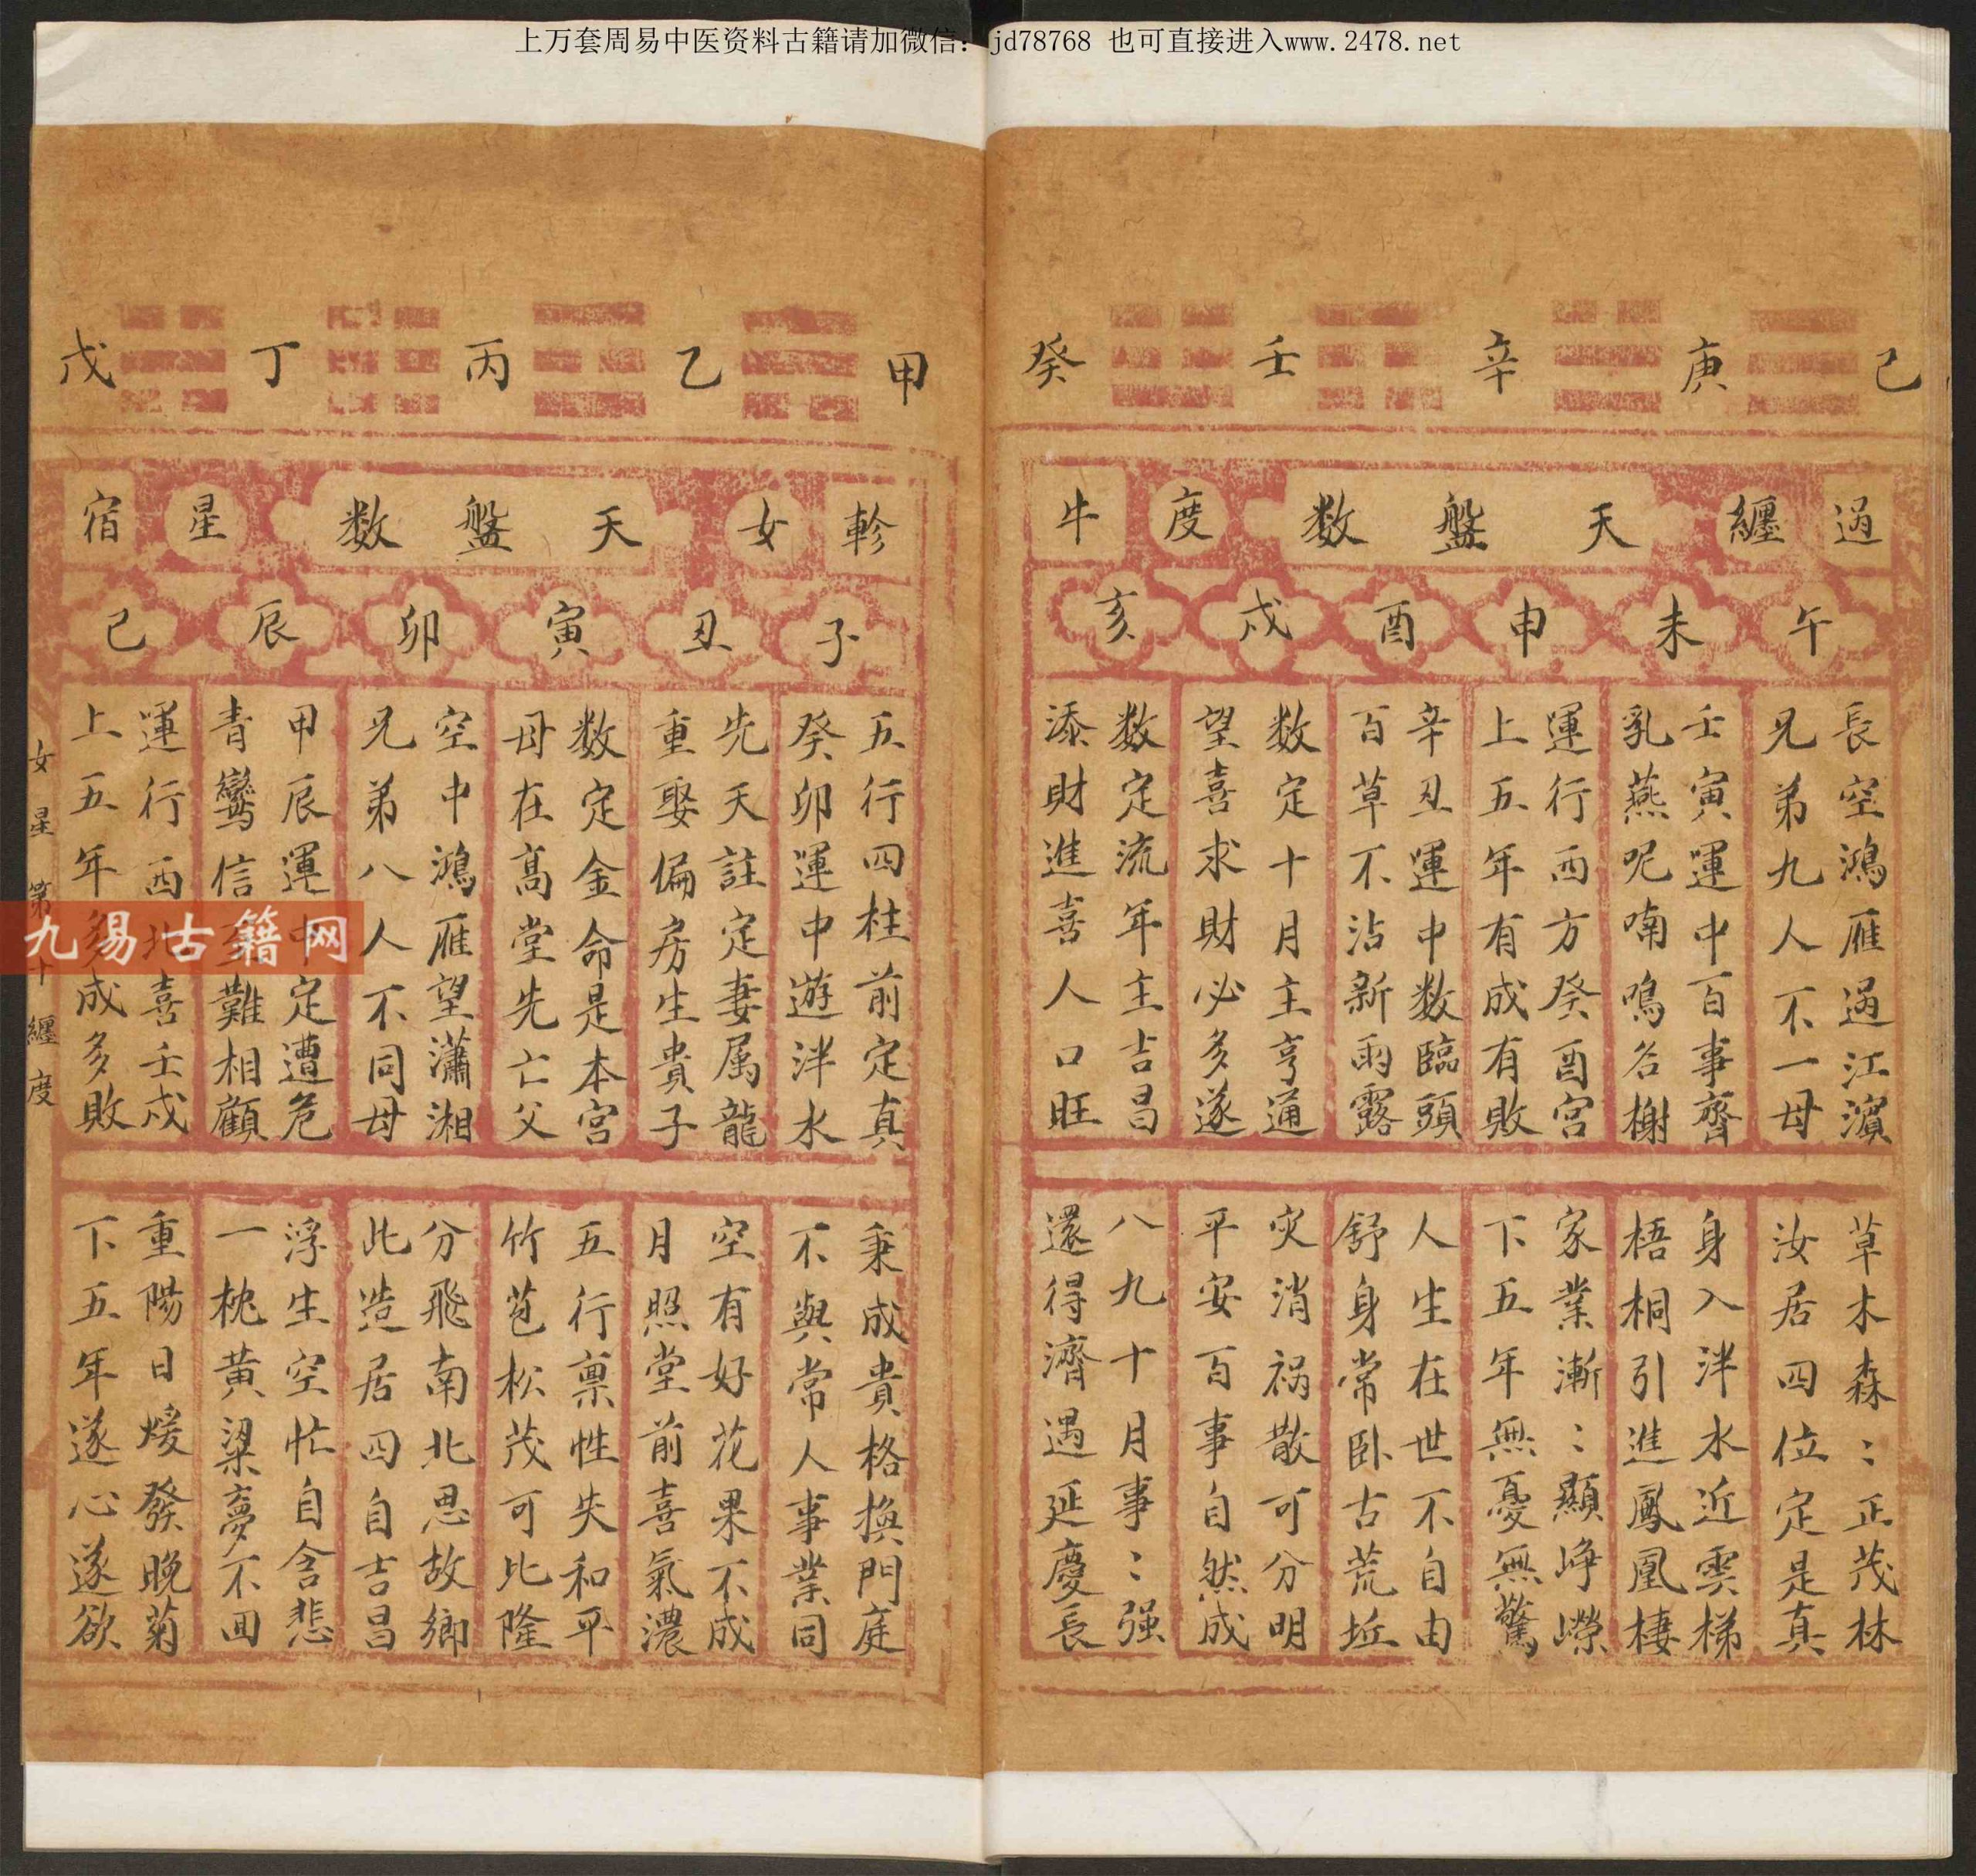 上万套周易中医资料古籍请加微信：jd78768 也可直接进入www.2478.net
己 庚 辛 壬 癸
過 纏 天盤数 度 牛
午 未 申 酉 戌 亥
長空鴻雁過江濵
兄弟九人不一母
壬寅運中百事齊
乳燕呢喃鳴谷榭
運行西方癸酉宮
上五年有成有敗
辛丑運中数臨頭
百草不沾新雨露
数定十月主亨通
望喜求財必多遂
数定流年主吉昌
添財進喜人口旺
草木森：正茂林
汝居四位定是真
身入泮水近雲梯
梧桐引進鳳凰棲
家業漸：顯崢嶸
下五年無憂無驚
人生在世不自由
舒身常卧古荒坵
灾消祸散可分明
平安百事自然成
八九十月事：强
還得濟遇延慶長
甲 乙 丙 丁 戊
軫 女 天盤数 星 宿
子 丑 寅 卯 辰 巳
五行四柱前定真
癸卯運中遊泮水
先天註定妻属龍
重娶偏房生貴子
数定金命是本宮
母在髙堂先亡父
空中鴻雁望瀟湘
兄弟八人不同母
甲辰運中定遭危
青鸞信難相顧
運行西北喜壬戌
上五年多成多敗
秉成貴格換門庭
不與常人事業同
空有好花果不成
月照堂前喜氣濃
五行禀性失和平
竹苞松茂可比隆
分飛南北思故鄉
此造居四自吉昌
浮生空忙自含悲
一枕黄粱夢不回
重陽日煖發晚菊
下五年遂心遂欲
女星第十纏度
九易古籍网